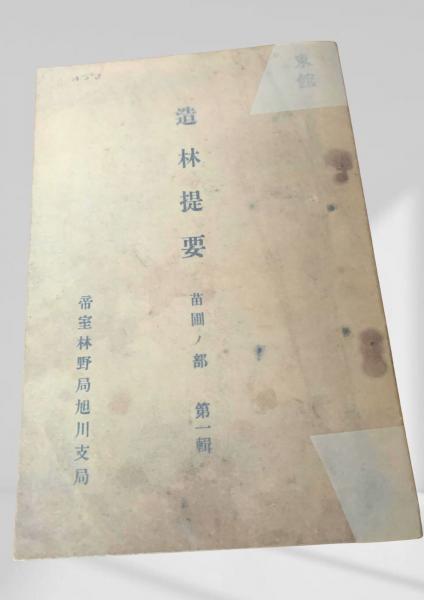 東館
造林提要
苗圃ノ部 第一輯
帝室林野局旭川支局